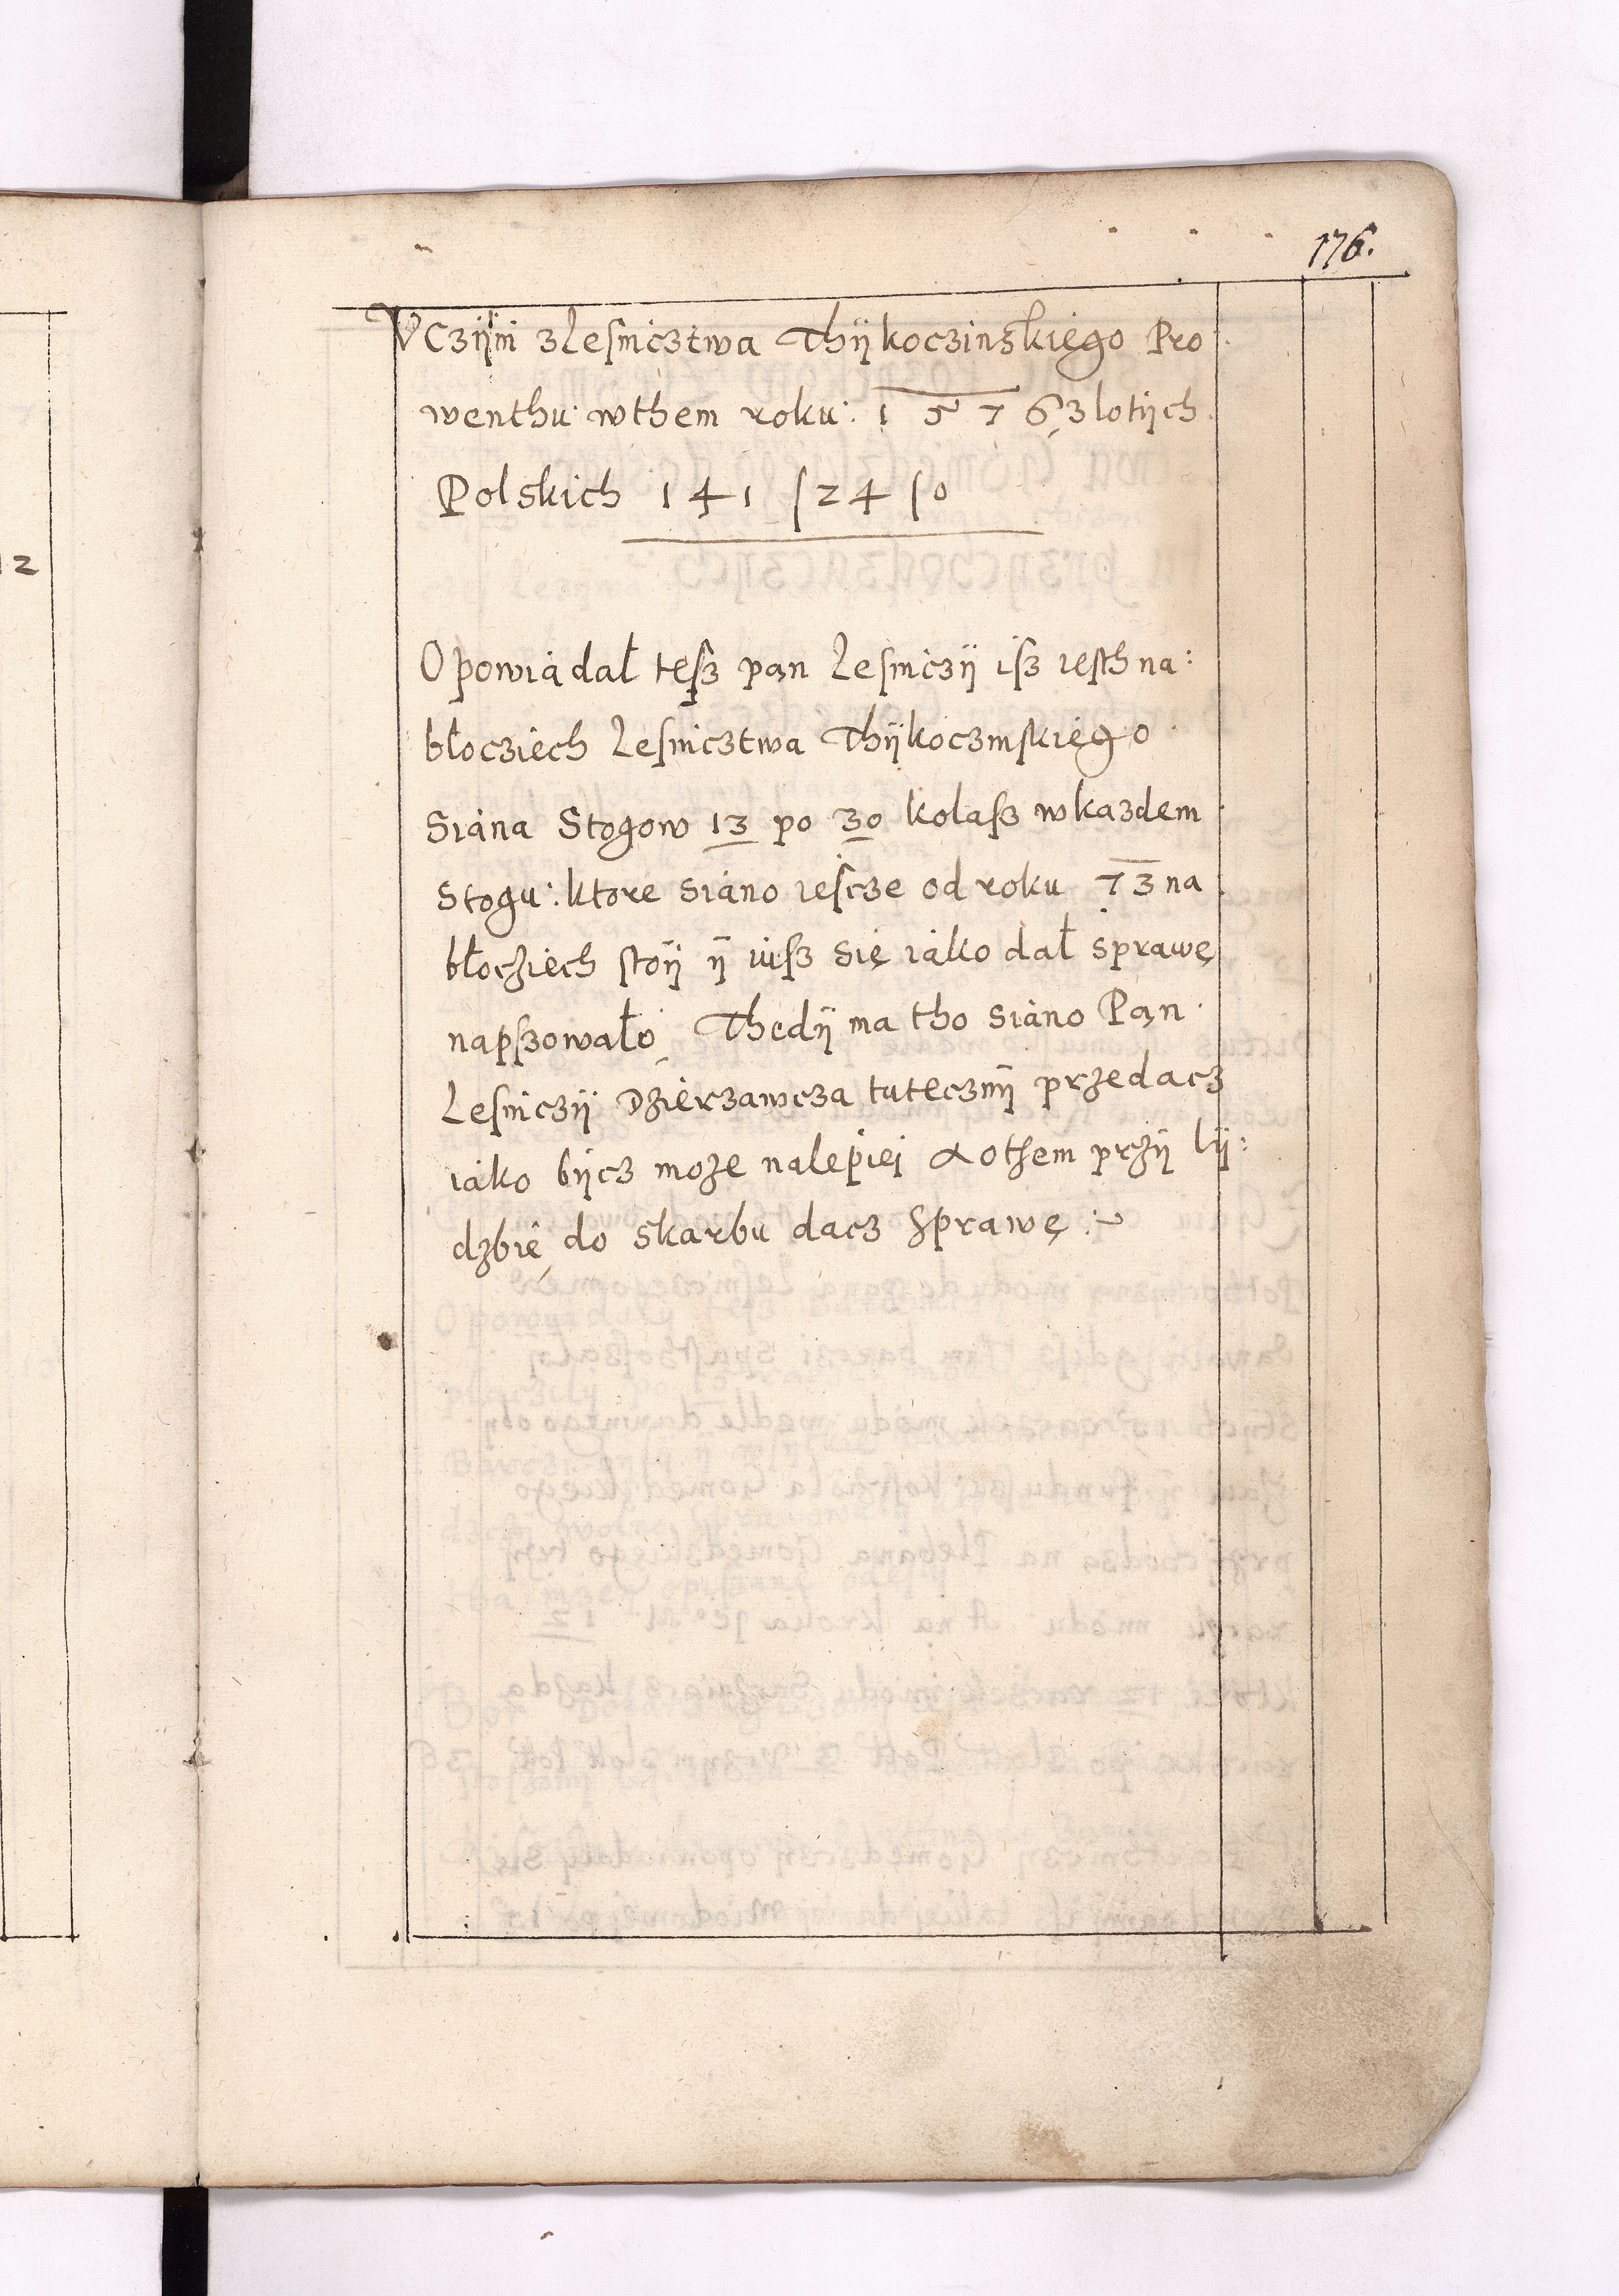 176.
Vczÿni zLesnicztwa Thÿkoczinskiego Pro
wenthu: wthem roku: 1 5 7 6 zlotÿch
Polskich 141 ʃ24 ʃ0
12
Opowiadał tesz pan Lesniczÿ isz iesth na:
błocziech Lesnicztwa Thÿkoczinskiego
Siana Stogow 13 po 30 kolasz wkazdem
Stogu: ktore siano iescze od roku 73 na
błocziech stoÿ ÿ iusz się iako dał sprawę
napszowało Thedÿ ma tho siano Pan
Lesniczÿ Dzierzawcza tutecznÿ przedacz
iako bÿcz moze nalepiei a othem przÿ lÿ:
dzbie do skarbu dacz sprawę :~